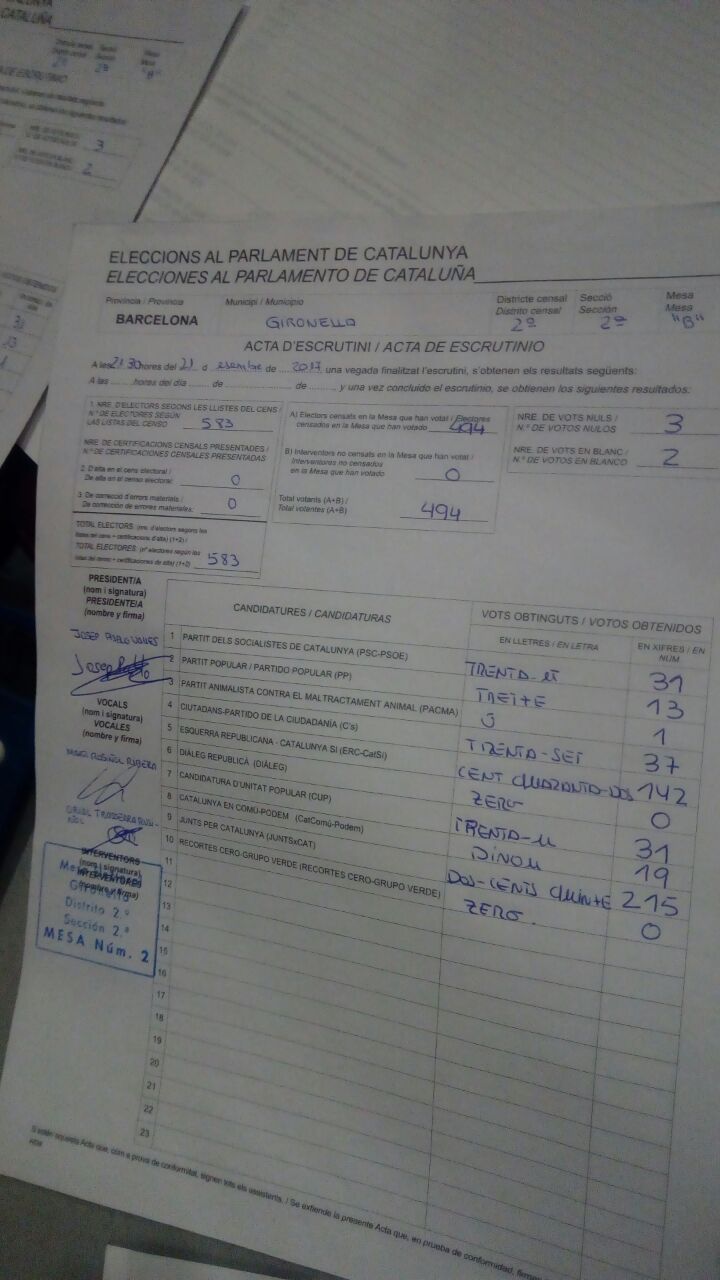 ELECCIONS AL PARLAMENT DE CATALUNYA
ELECCIONES AL PARLAMENTO DE CATALUÑA
Província / Provincia
BARCELONA
Municipi / Municipio
GIRONELLA
Districte censal
Distrito censal
2º
Secció
Sección
2ª
Mesa
Mesa
"B"
ACTA D'ESCRUTINI / ACTA DE ESCRUTINIO
A les 21:30 hores del 21 d esembre de 2017 una vegada finalitzat l'escrutini, s'obtenen els resultats següents:
A las ........ hores del día ....... de .................... de .......... y una vez concluido el escrutinio, se obtienen los siguientes resultados:
1. NRE. D'ELECTORS SEGONS LES LLISTES DEL CENS /
N.º DE ELECTORES SEGÚN
LAS LISTAS DEL CENSO 583
NRE. DE CERTIFICACIONS CENSALS PRESENTADES /
N.º DE CERTIFICACIONES CENSALES PRESENTADAS
2. D'alta en el cens electoral /
De alta en el censo electoral: 0
3. De correcció d'errors materials /
De corrección de errores materiales: 0
TOTAL ELECTORS (nre. d'electors segons les
llistes del cens + certificacions d'alta) (1+2) /
TOTAL ELECTORES: (nº electores según las
listas del censo + certificaciones de alta) (1+2) 583
A) Electors censats en la Mesa que han votat / Electores
censados en la Mesa que han votado 494
B) Interventors no censats en la Mesa que han votat /
Interventores no censados
en la Mesa que han votado 0
Total votants (A+B) /
Total votentes (A+B) 494
NRE. DE VOTS NULS /
N.º DE VOTOS NULOS 3
NRE. DE VOTS EN BLANC /
N.º DE VOTOS EN BLANCO 2
PRESIDENT/A
(nom i signatura)
PRESIDENTE/A
(nombre y firma)
JOSEP
Josep
VOCALS
(nom i signatura)
VOCALES
(nombre y firma)
RIBERA
INTERVENTORS
(nom i signatura)
INTERVENTORES
(nombre y firma)
Gironella
Distrito 2.º
Sección 2.ª
MESA Núm. 2
CANDIDATURES / CANDIDATURAS
VOTS OBTINGUTS / VOTOS OBTENIDOS
EN LLETRES / EN LETRA
EN XIFRES / EN NÚM
1 PARTIT DELS SOCIALISTES DE CATALUNYA (PSC-PSOE) TRENTA-U 31
2 PARTIT POPULAR / PARTIDO POPULAR (PP) TRETZE 13
3 PARTIT ANIMALISTA CONTRA EL MALTRACTAMENT ANIMAL (PACMA) U 1
4 CIUTADANS-PARTIDO DE LA CIUDADANÍA (C's) TRENTA-SET 37
5 ESQUERRA REPUBLICANA - CATALUNYA SÍ (ERC-CatSí) CENT QUARANTA-DOS 142
6 DIÀLEG REPUBLICÀ (DIÀLEG) ZERO 0
7 CANDIDATURA D'UNITAT POPULAR (CUP) TRENTA-U 31
8 CATALUNYA EN COMÚ-PODEM (CatComú-Podem) DINOU 19
9 JUNTS PER CATALUNYA (JUNTSxCAT) DOS-CENTS QUINZE 215
10 RECORTES CERO-GRUPO VERDE (RECORTES CERO-GRUPO VERDE) ZERO. 0
11
12
13
14
15
16
17
18
19
20
21
22
23
S'estén aquesta Acta que, com a prova de conformitat, signen tots els assistents. / Se extiende la presente Acta que, en prueba de conformidad,